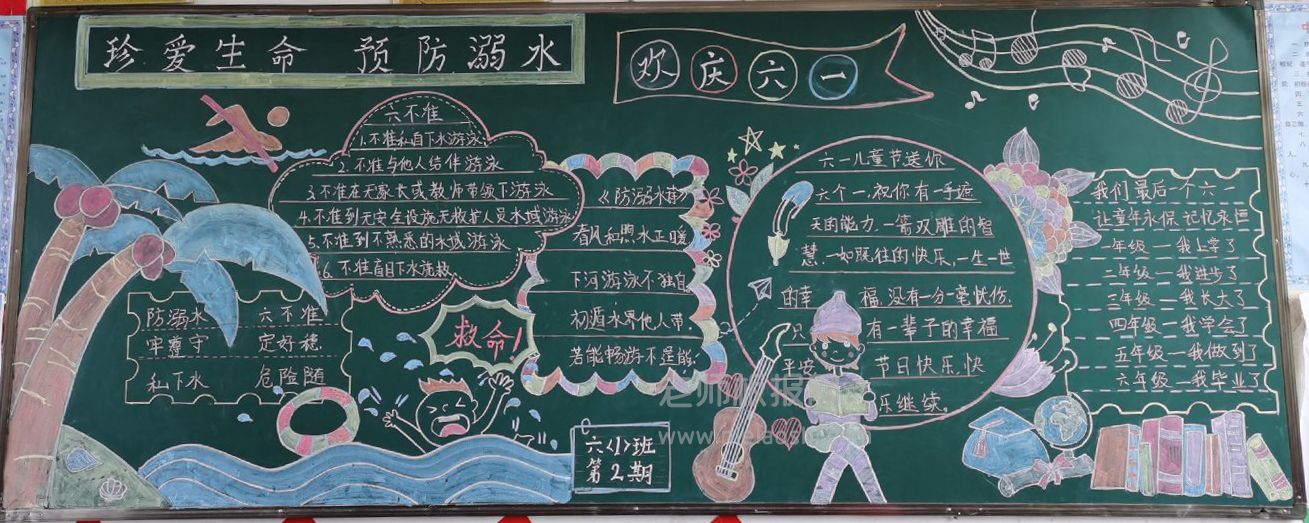 珍爱生命 预防溺水
欢庆六一
六不准
1.不准私自下水游泳
2.不准与他人结伴游泳
3.不准在无家长或教师带领下游泳
4.不准到无安全设施无救护人员水域游泳
5.不准到不熟悉的水域游泳
6.不准盲目下水施救
防溺水 六不准
牢遵守 定好稳
私下水 危险随
救命!
《防溺水诗》
春风和煦水正暖
下河游泳不独自
初遁水界他人带.
若能畅游不逞能.
六一儿童节送你
六个一,祝你有一手遮
天的能力.一箭双雕的智
慧.一如既往的快乐,一生一世
的幸福.没有一分一毫忧伤.
只有一辈子的幸福
平安 节日快乐,快
乐继续。
我们最后一个六一
让童年永保 记忆永恒
一年级一我上学了
二年级一我进步了
三年级一我长大了
四年级一我学会了
五年级一我做到了
六年级一我毕业了
六<1>班
第2期